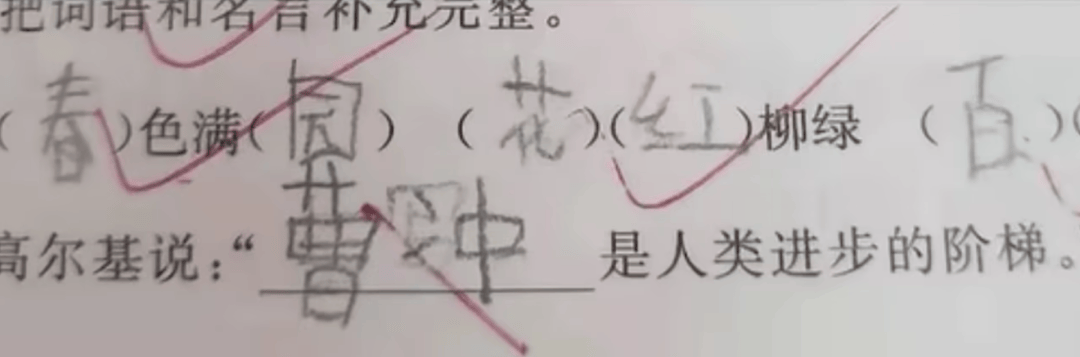 把词语和名言补充完整。
(春)色满(园) (花)(红)柳绿 (百)(
高尔基说:“ 中 是人类进步的阶梯。